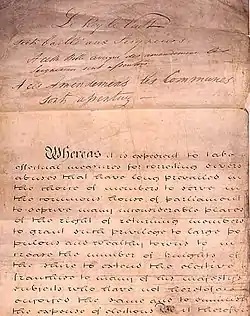 Le Roy le Veult
Soit Baillé aux Seigneurs
A cette Bille avecque des amendemens les
Seigneurs sont assentus
A ces Amendemens les Communes
sont assentus
Whereas it is expedient to take
effectual measures for correcting divers
abuses that have long prevailed in
the choice of members to serve in
the commons house of parliament
to deprive many inconsiderable places
of the right of returning members
to grant such privilege to large po
pulous and wealthy towns to in
crease the number of knights of
the shire to extend the elective
franchise to many of his majestys
subjects who have not heretofore
enjoyed the same and to diminish
the expense of elections Be it therefore